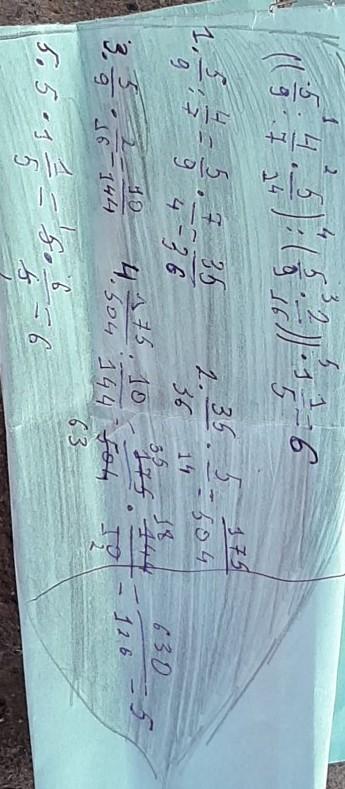 ((5/9 : 4/7 · 5/14) : (5/9 · 2/16)) · 1 1/5 = 6
1. 5/9 : 4/7 = 5/9 · 7/4 = 35/36
2. 35/36 · 5/14 = 175/504
3. 5/9 · 2/16 = 10/144
4. 175/504 : 10/144 = 175/504 · 144/10 = 630/126 = 5
5. 5 · 1 1/5 = 5 · 6/5 = 6